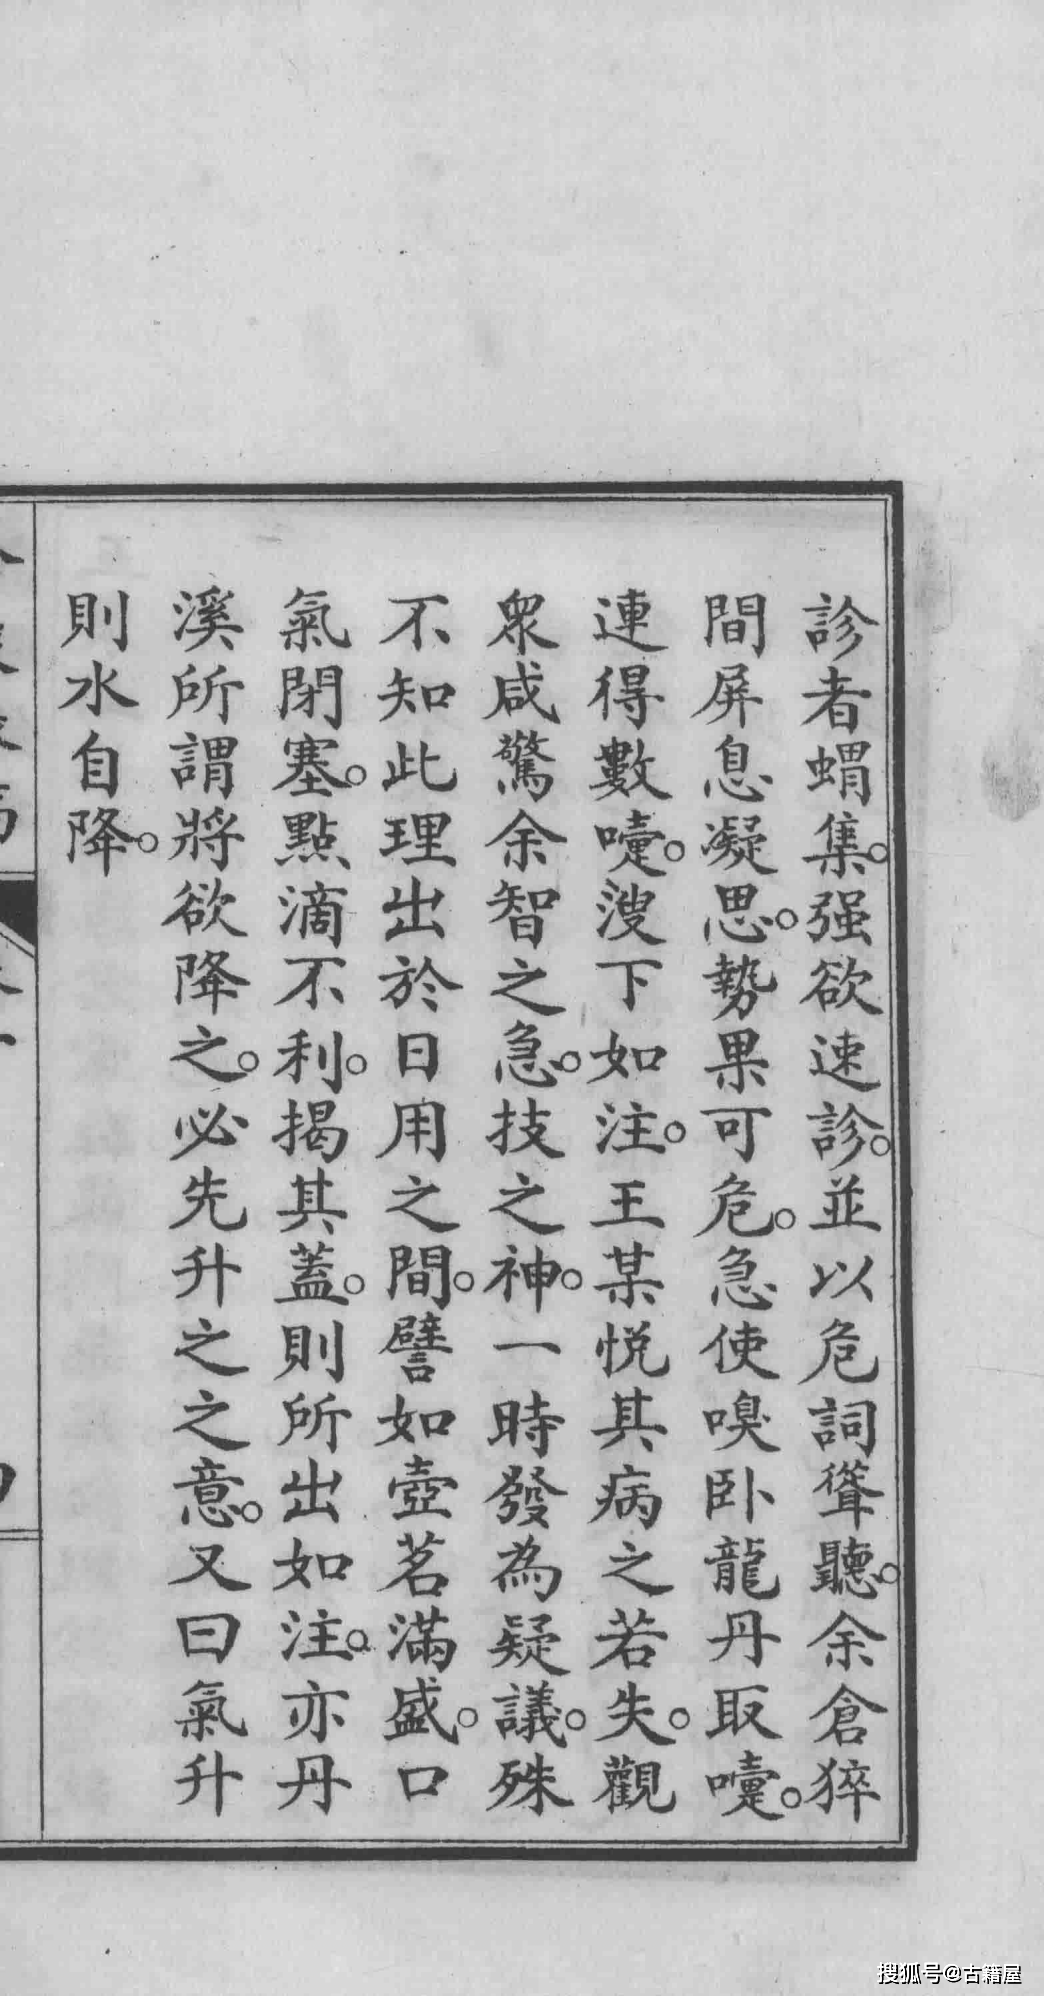 診者蝟集。强欲速診。並以危詞聳聽。余倉猝
間屏息凝思。勢果可危。急使嗅卧龍丹取嚔。
連得數嚔。溲下如注。王某悅其病之若失。觀
衆咸驚余智之急。技之神。一時發為疑議。殊
不知此理出於日用之間。譬如壺茗滿盛。口
氣閉塞。點滴不利。揭其蓋。則所出如注。亦丹
溪所謂將欲降之。必先升之之意。又曰氣升
則水自降。
搜狐号@古籍屋